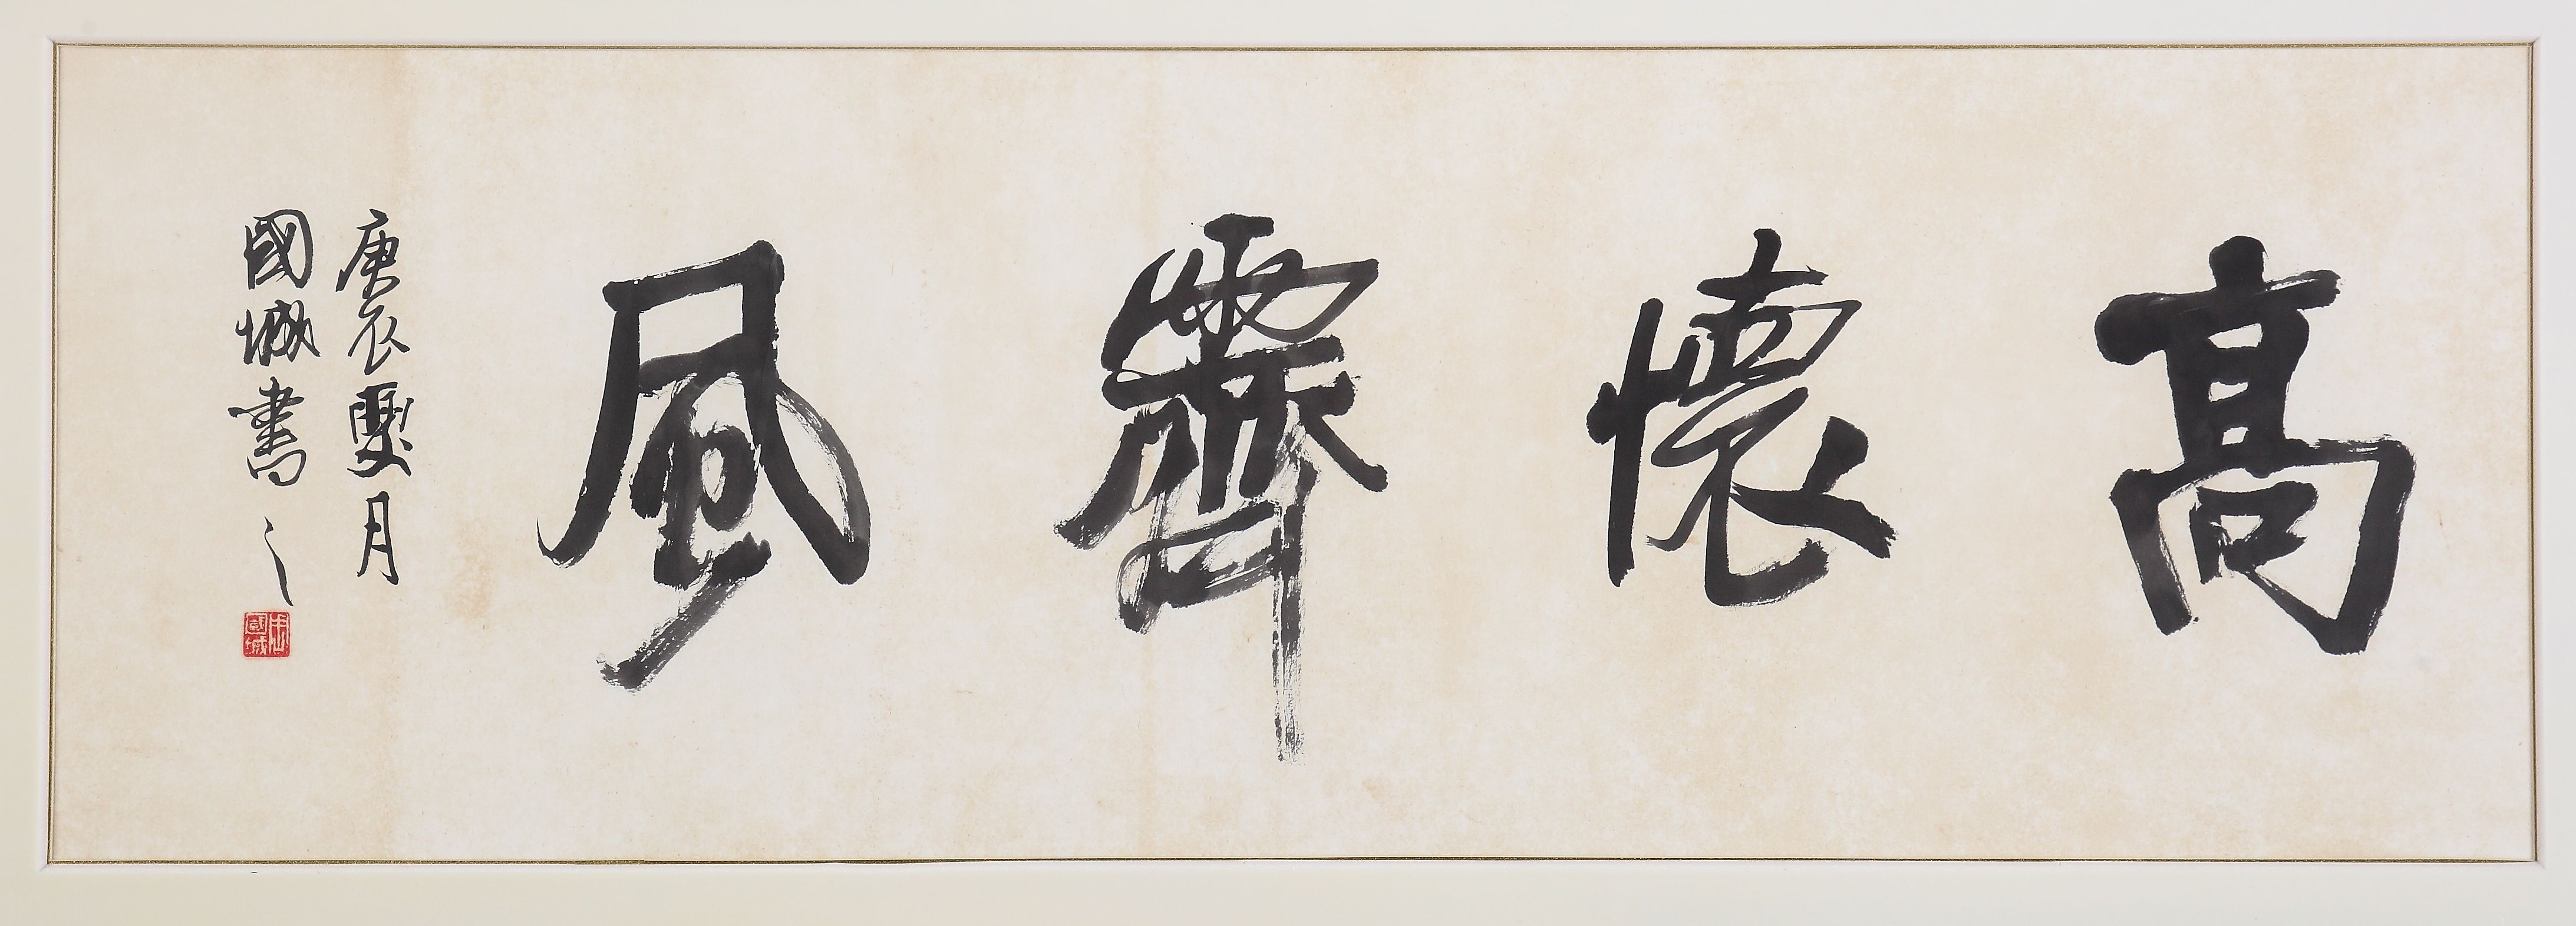 高懷霽風
庚辰夏月
國城書
周國城